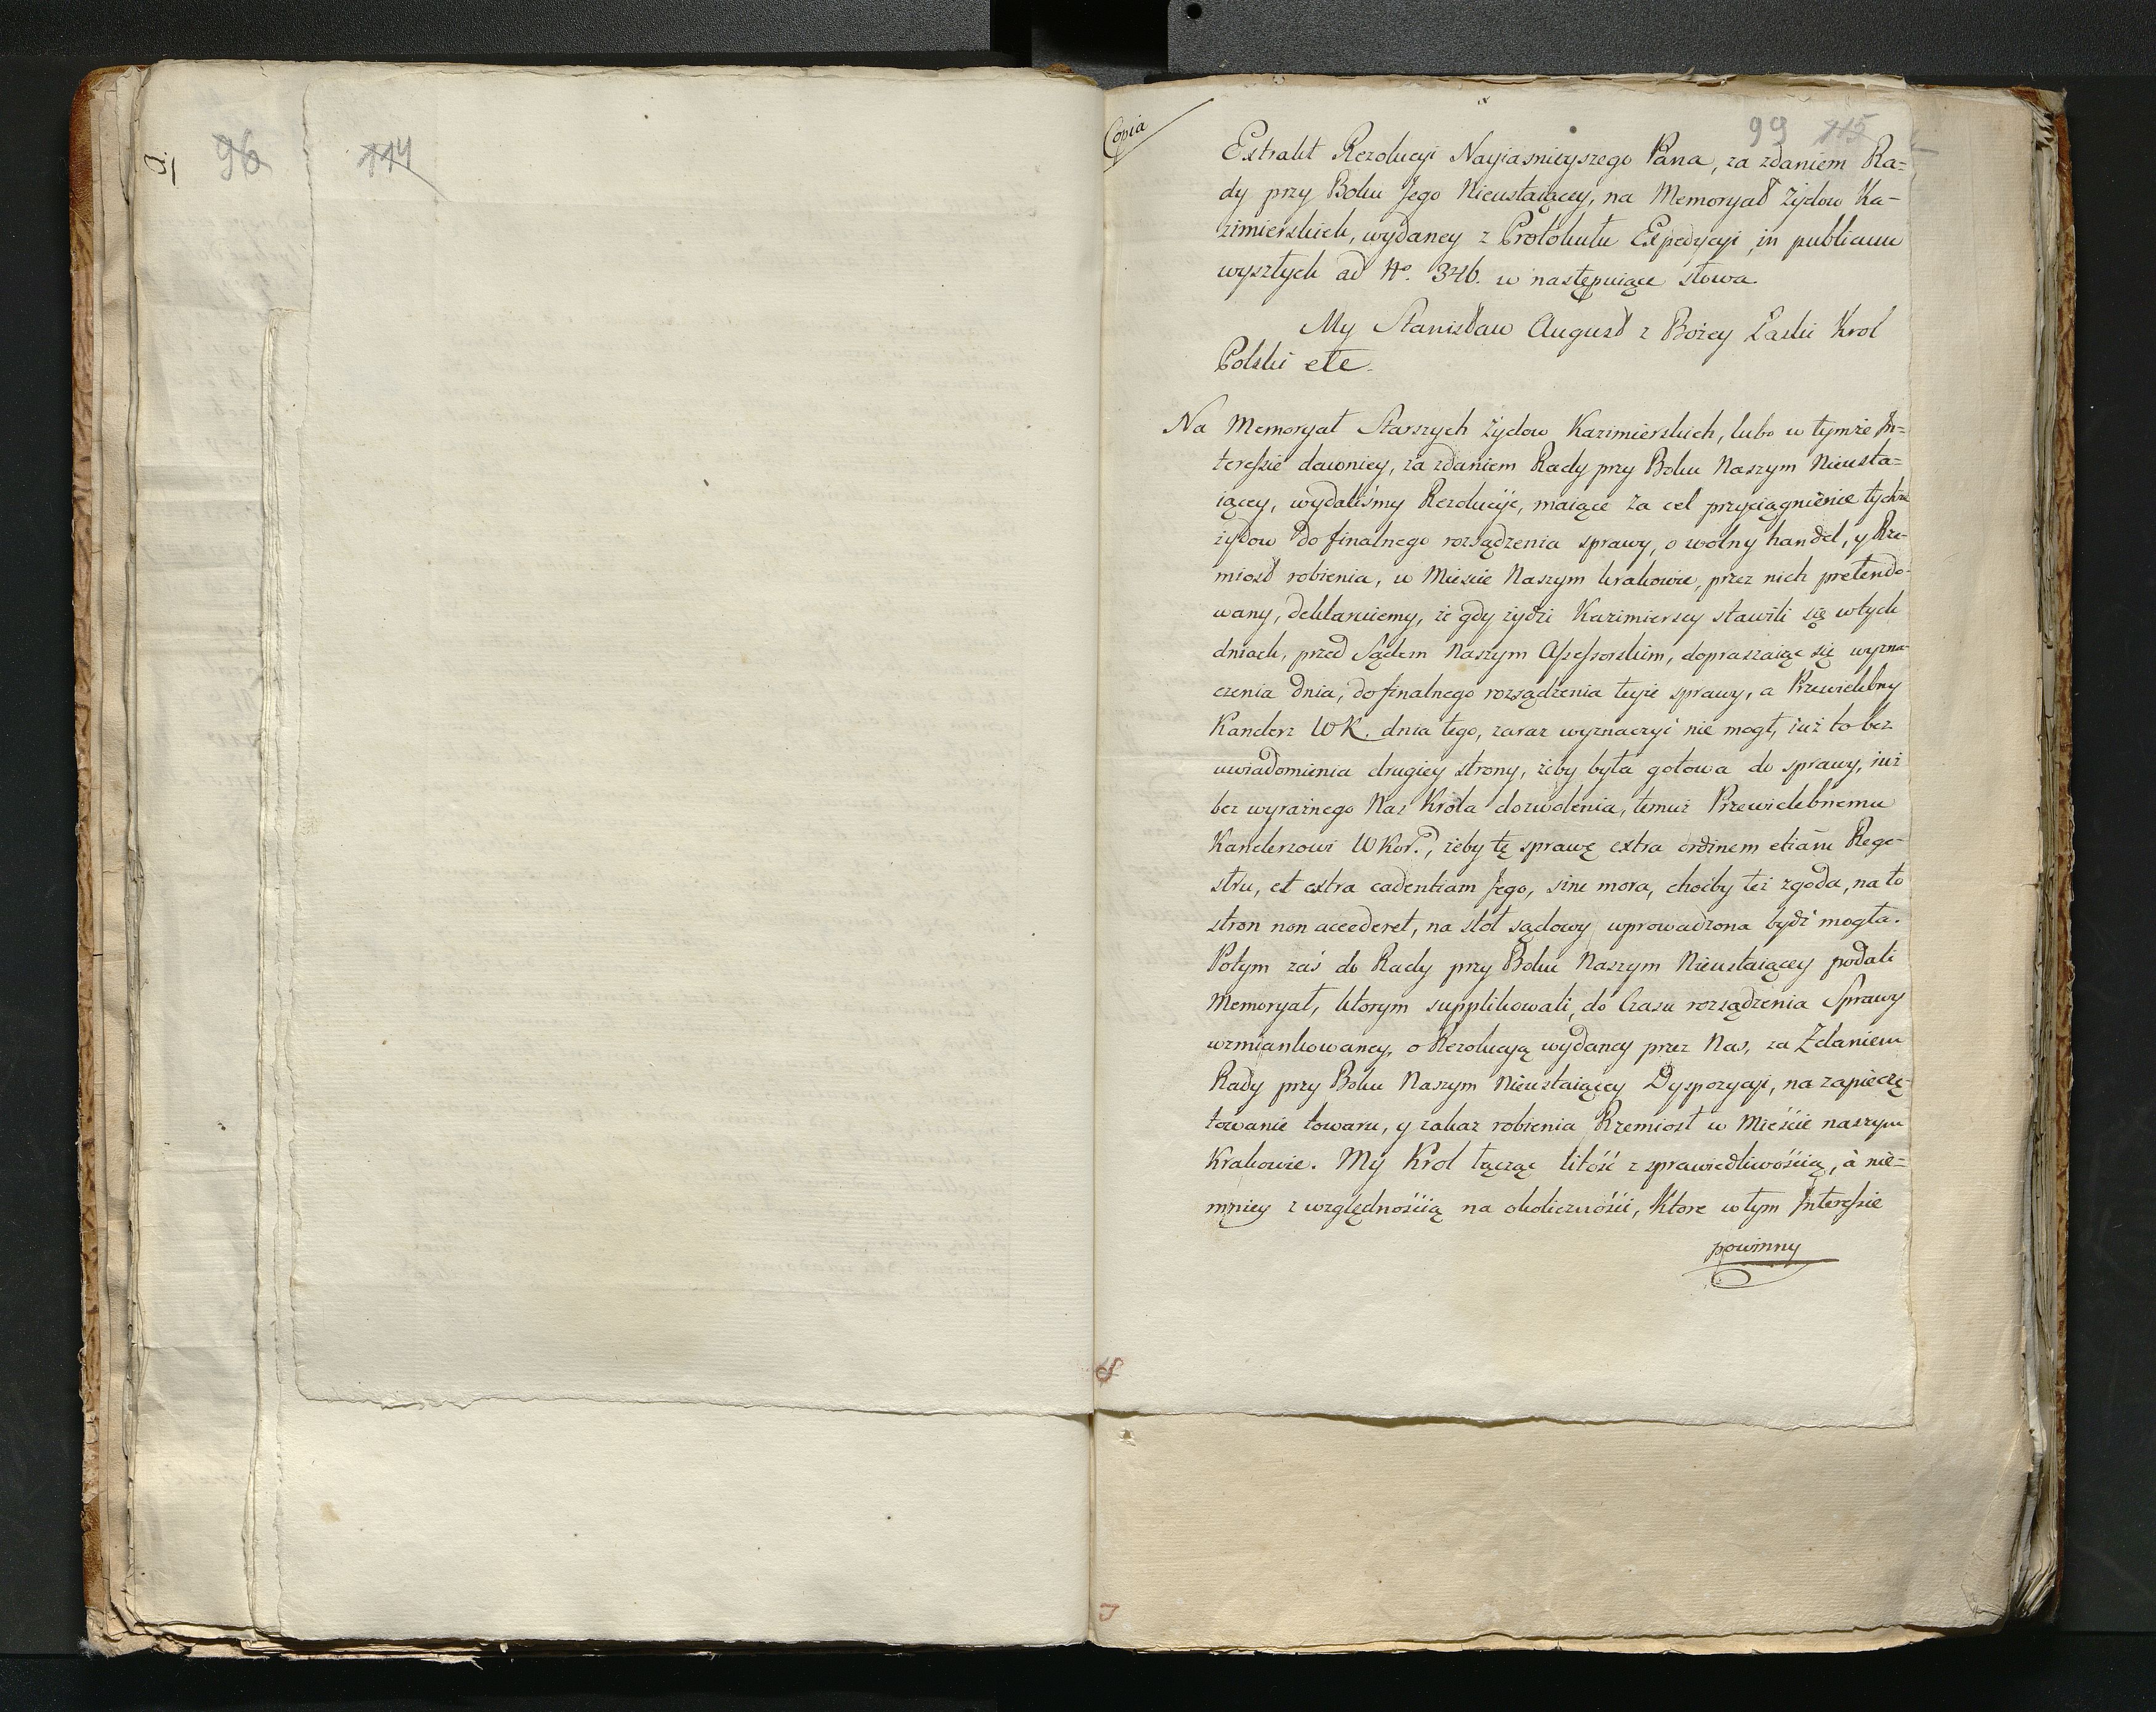 96
114
Copia
99 115
Extrakt Rezolucyi Nayiasnieyszego Pana, za zdaniem Ra=
dy przy Boku Jego Nieustaiącey, na Memoryał Żydow Ka-
zimierskich, wydaney z Protokułu Expedycyi in publicum
wyszłych ad Nº. 346. w następuiące słowa.
My Stanisław August z Bożey Łaski Krol
Polski etc.
Na Memoryał Starszych Żydow Kazimierskich, lubo w tymże In=
teressie dawniey, za zdaniem Rady przy Boku Naszym Nieusta=
iącey, wydaliśmy Rezolucije, maiące za cel przyciągnienie tychże
żydow do finalnego rozsądzenia sprawy, o wolny handel, y Rze-
miosł robienia, w Miescie Naszym krakowie, przez nich pretendo-
wany, deklaruiemy, że gdy żydzi Kazimierscy stawili się w tych
dniach, przed Sądem Naszym Assessorskim, dopraszaiąc się wyzna-
czenia dnia, do finalnego rozsądzenia teyże sprawy, a Przewielebny
Kanclerz WK. dnia tego, zaraz wyznaczyć nie mogł, iuż to bez
uwiadomienia drugiey strony, żeby była gotowa do sprawy, iuż
bez wyraźnego Nas Krola dozwolenia, temuż Przewielebnemu
Kanclerzowi WKor., żeby tę sprawę extra ordinem etiam Rege-
stru, et extra cadentiam Jego, sine mora, choćby też zgoda, na to
stron non accederet, na stoł sądowy wprowadzona bydź mogła.
Potym zaś do Rady przy Boku Naszym Nieustaiącey podali
Memoryał, ktorym supplikowali, do Czasu rozsądzenia Sprawy
wzmiankowaney, o Rezolucyą wydaney przez Nas, za Zdaniem
Rady przy Boku Naszym Nieustaiącey Dyspozycyi, na zapieczę-
towanie towaru, y zakaz robienia Rzemiosł w Mieście naszym
Krakowie. My Krol łącząc litość z sprawiedliwością, à nie=
mniey z względnością na okoliczności, Ktore w tym Interessie
powinny